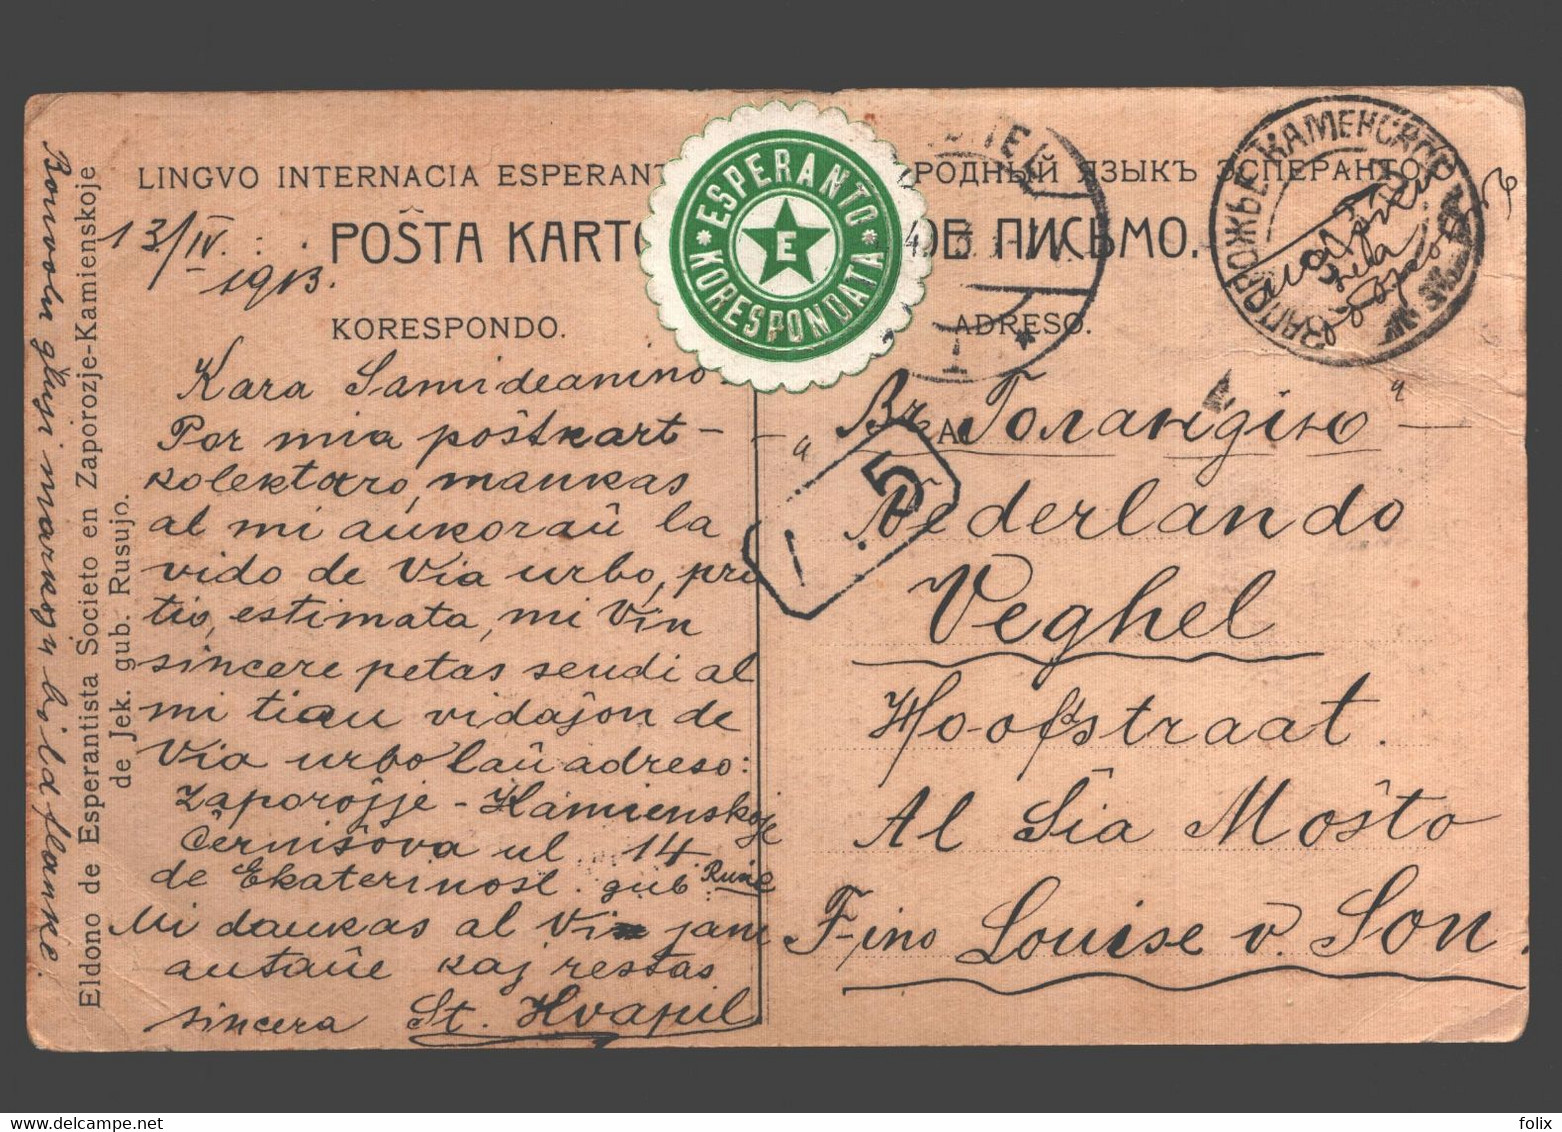 LINGVO INTERNACIA ESPERANT
РОДНЫЙ ЯЗЫКЪ ЭСПЕРАНТО
POŜTA KARTO
ОЕ ПИСЬМО.
ESPERANTO
E
KORESPONDATA
ЗАПОРОЖЬЕ-КАМЕНСКОЕ
13/IV
1913.
KORESPONDO.
ADRESO.
Kara Samideanino.
Por mia poŝtkart-
kolektaro, mankas
al mi aŭkoraŭ la
vido de Via urbo, pro
tio, estimata, mi Vin
sincere petas sendi al
mi tian vidaĵon de
Via urbo laŭ adreso:
Zaporoĵje-Kamienskoje
Ĉerniŝova ul. 14.
de Ekaterinosl. gub. Rusio
Mi dankas al Vi jam
antaŭe kaj restas
sincera St. Hvapil
Bonvolu glui markojn bild flanke.
Eldono de Esperantista Societo en Zaporozje-Kamienskoje
de Jek. gub. Rusujo.
Въ Голандію
5
Nederlando
Veghel
Hoofdstraat.
Al Ŝia Moŝto
F-ino Louise v. Son.